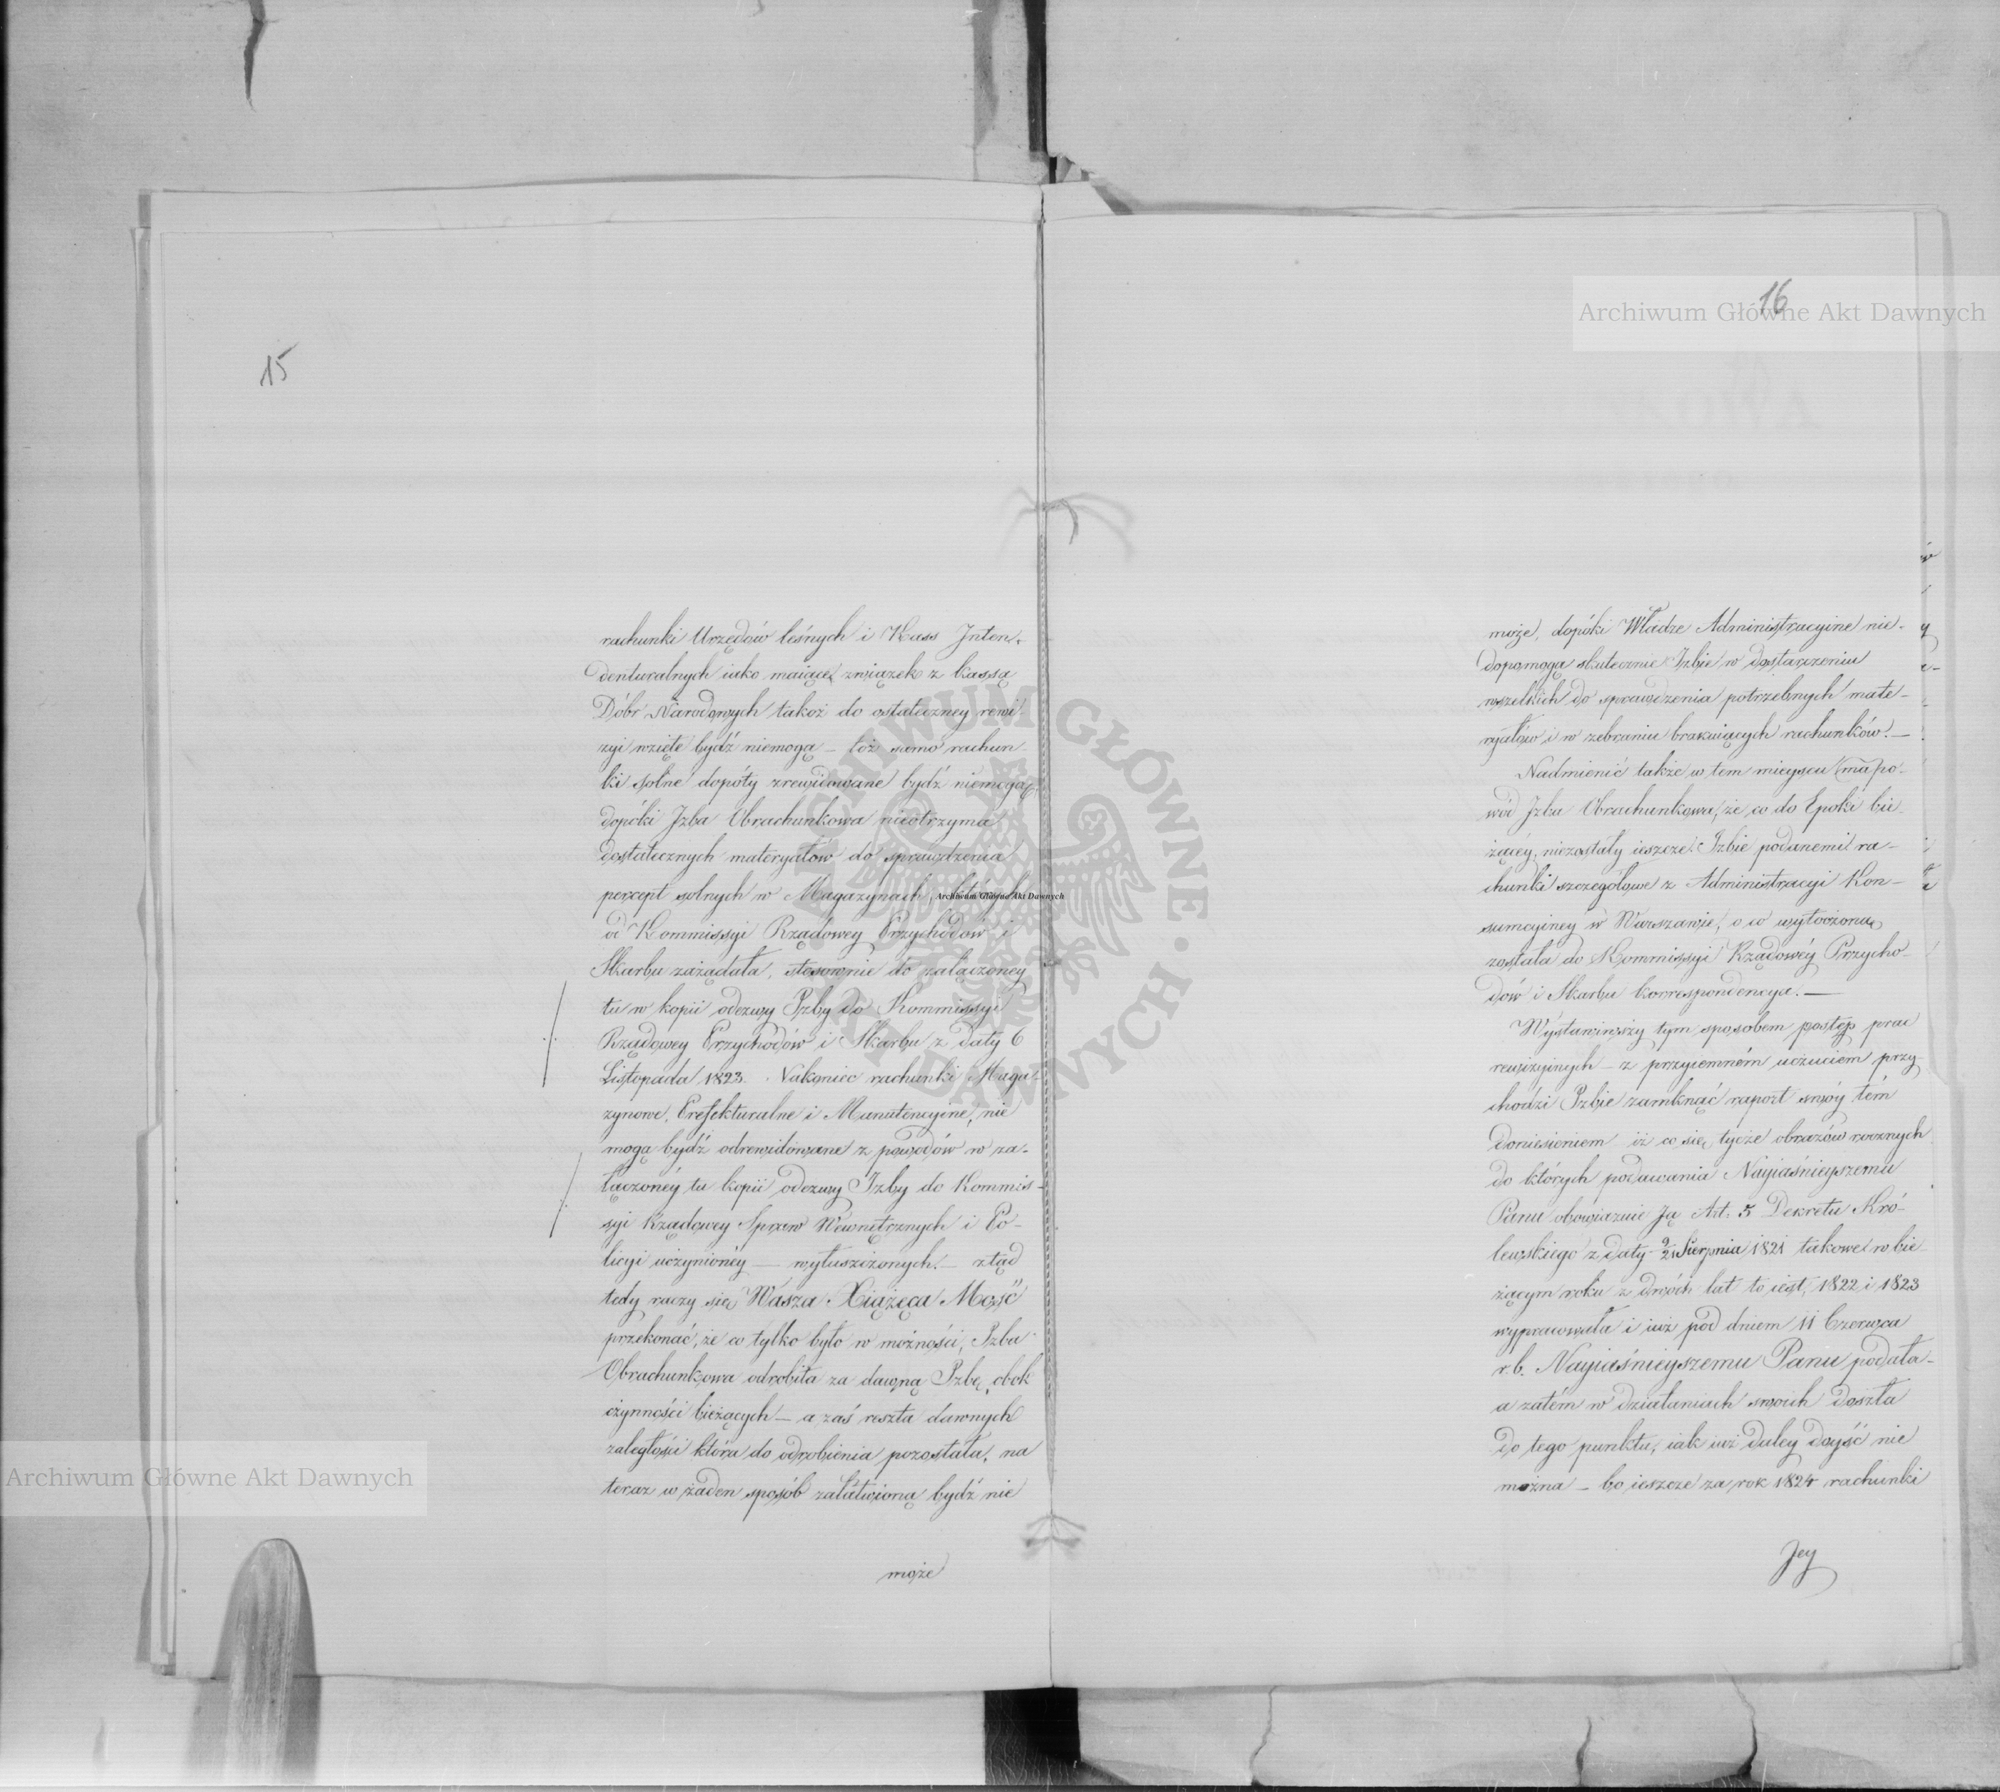 15
rachunki Urzędów leśnych i Kass Inten-
denturalnych iako maiące związek z kassą
Dóbr Narodowych takoż do ostateczney rewi
zyi wzięte bydź niemogą – toż samo rachun
ki solne dopóty zrewidowane bydź niemogą,
dopóki Izba Obrachunkowa nieotrzyma
dostatecznych materyałów do sprawdzenia
percept solnych w Magazynach, których
od Kommissyi Rządowey Przychodów i
Skarbu zażądała, stosownie do załączoney
tu w kopii odezwy Izby do Kommissyi
Rządowey Przychodów i Skarbu z daty 6
Listopada 1823. Nakoniec rachunki Maga-
zynowe, Prefekturalne i Manutencyine, nie
mogą bydź odrewidowane z powodów w za-
łączonéy tu kopii odezwy Izby do Kommis-
syi Rządowey Spraw Wewnętrznych i Po-
licyi uczynionéy — wyłuszczonych. – ztąd
tedy raczy się Wasza Xiążęca Mość
przekonać, że co tylko było w możności, Izba
Obrachunkowa odrobiła za dawną Izbę, obok
czynności bieżących – a zaś reszta dawnych
zaległości która do odrobienia pozostała, na
teraz w żaden sposób załatwioną bydź nie
może
16
może, dopóki Władze Administracyine nie-
dopomogą skutecznie Izbie w dostarczeniu
wszelkich do sprawdzenia potrzebnych mate-
ryałów i w zebraniu brakuiących rachunków. —
Nadmienić także w tem mieyscu ma po-
wód Izba Obrachunkowa, że co do Epoki bie
żącéy, niezostały ieszcze Izbie podanemi ra-
chunki szczegółowe z Administracyi Kon-
sumcyiney w Warszawie, o co wytoczoną
została do Kommissyi Rządowéy Przycho-
dów i Skarbu korrespondencya. —
Wystawiwszy tym sposobem postęp prac
rewizyinych – z przyiemném uczuciem przy
chodzi Izbie zamknąć raport swóy tém
doniesieniem iż co się tycze obrazów rocznych
do których podawania Nayiaśnieyszemu
Panu obowiązuie Ją Art. 5 Dekretu Kró-
lewskiego z daty 9/21 Sierpnia 1821 takowe w bie
żącym roku z dwóch lat to iest, 1822 i 1823
wypracowała i iuż pod dniem 11 Czerwca
r.b. Nayiaśnieyszemu Panu podała –
a zatém w działaniach swoich doszła
do tego punktu, iak iuż daley doyść nie
można – bo ieszcze za rok 1824 rachunki
Jey
Archiwum Główne Akt Dawnych
Archiwum Główne Akt Dawnych
Archiwum Główne Akt Dawnych
ARCHIWUM GŁÓWNE AKT DAWNYCH